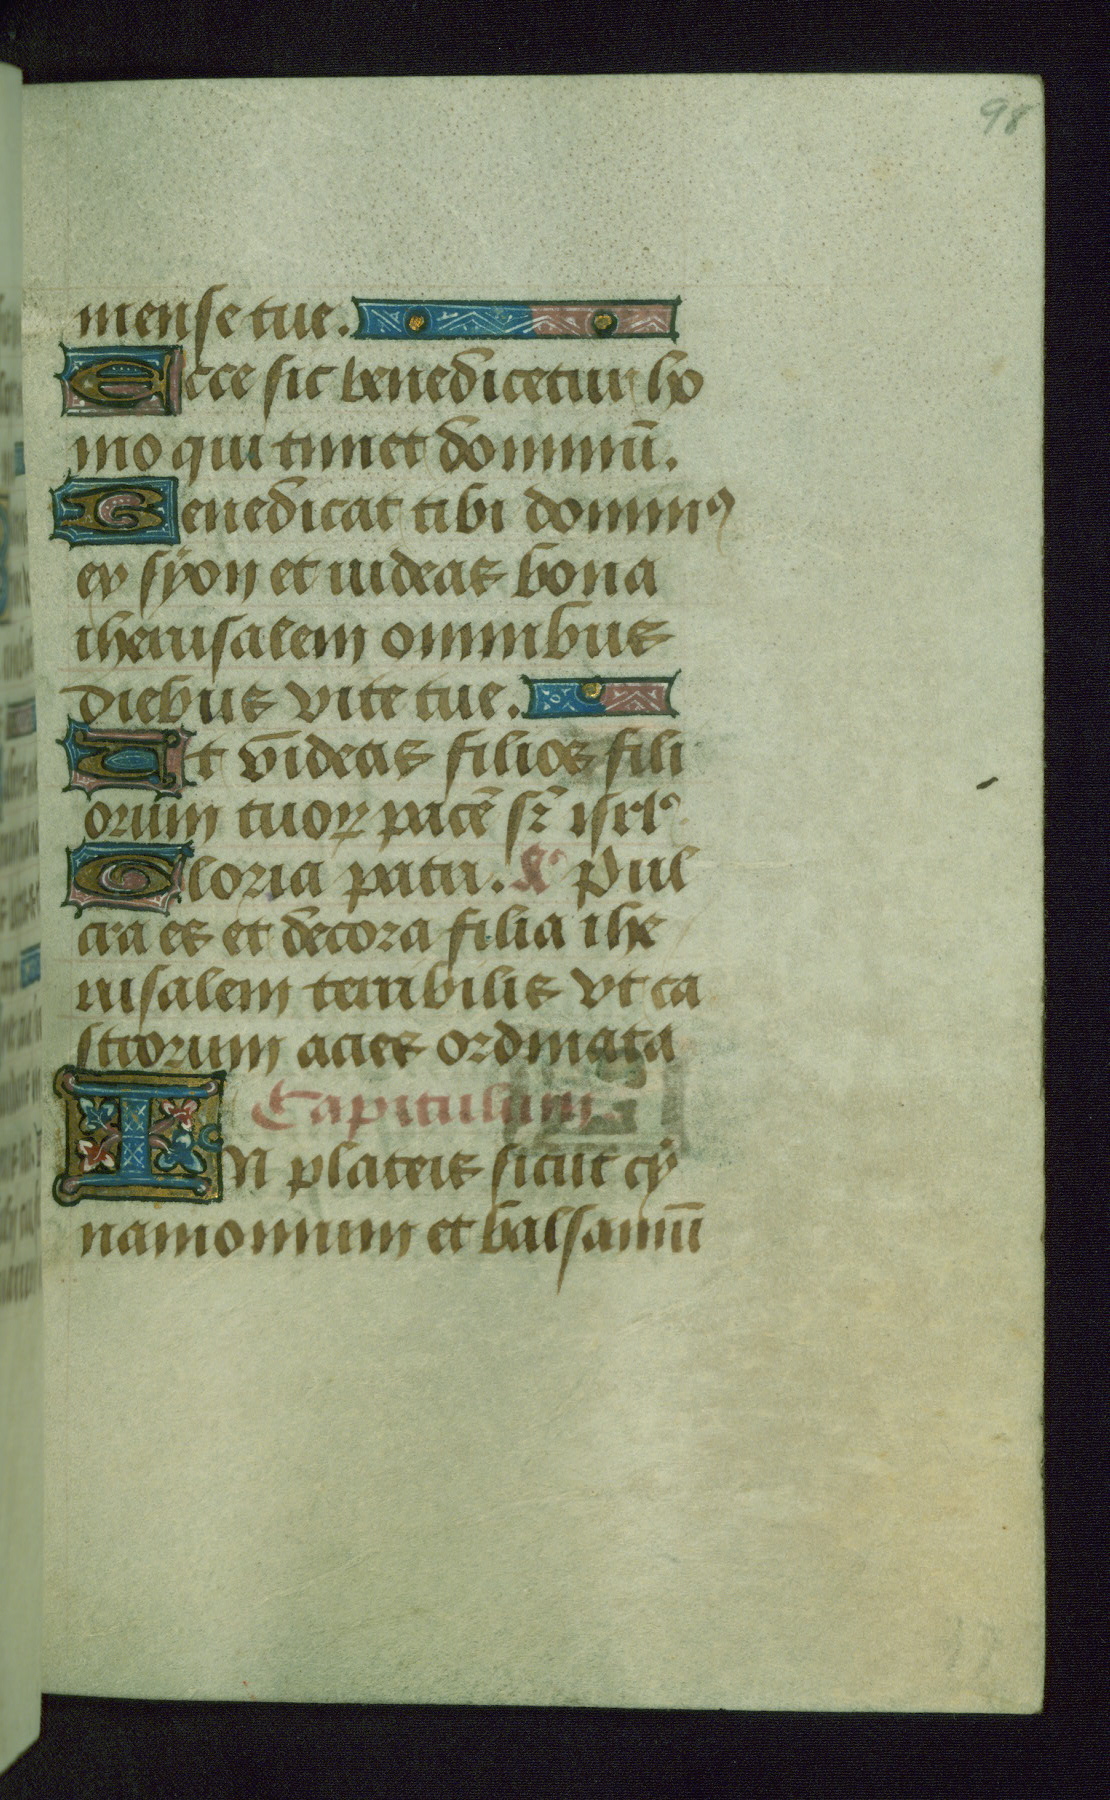 98
mense tue.
Ecce sic benedicetur ho
mo qui timet dominū.
Benedicat tibi dominꝰ
ex sÿon et uideas bona
iherusalem omnibus
diebus vite tue.
Ut videas filios fili
orum tuoꝝ pacē sr̄ isrlʾ
Gloria patri. Aᵃ Pul
cra es et decora filia ihe
rusalem terribilis vt ca
strorum acies ordinata
Capitulum.
IN plateis sicut cÿ
namomum et balsamū